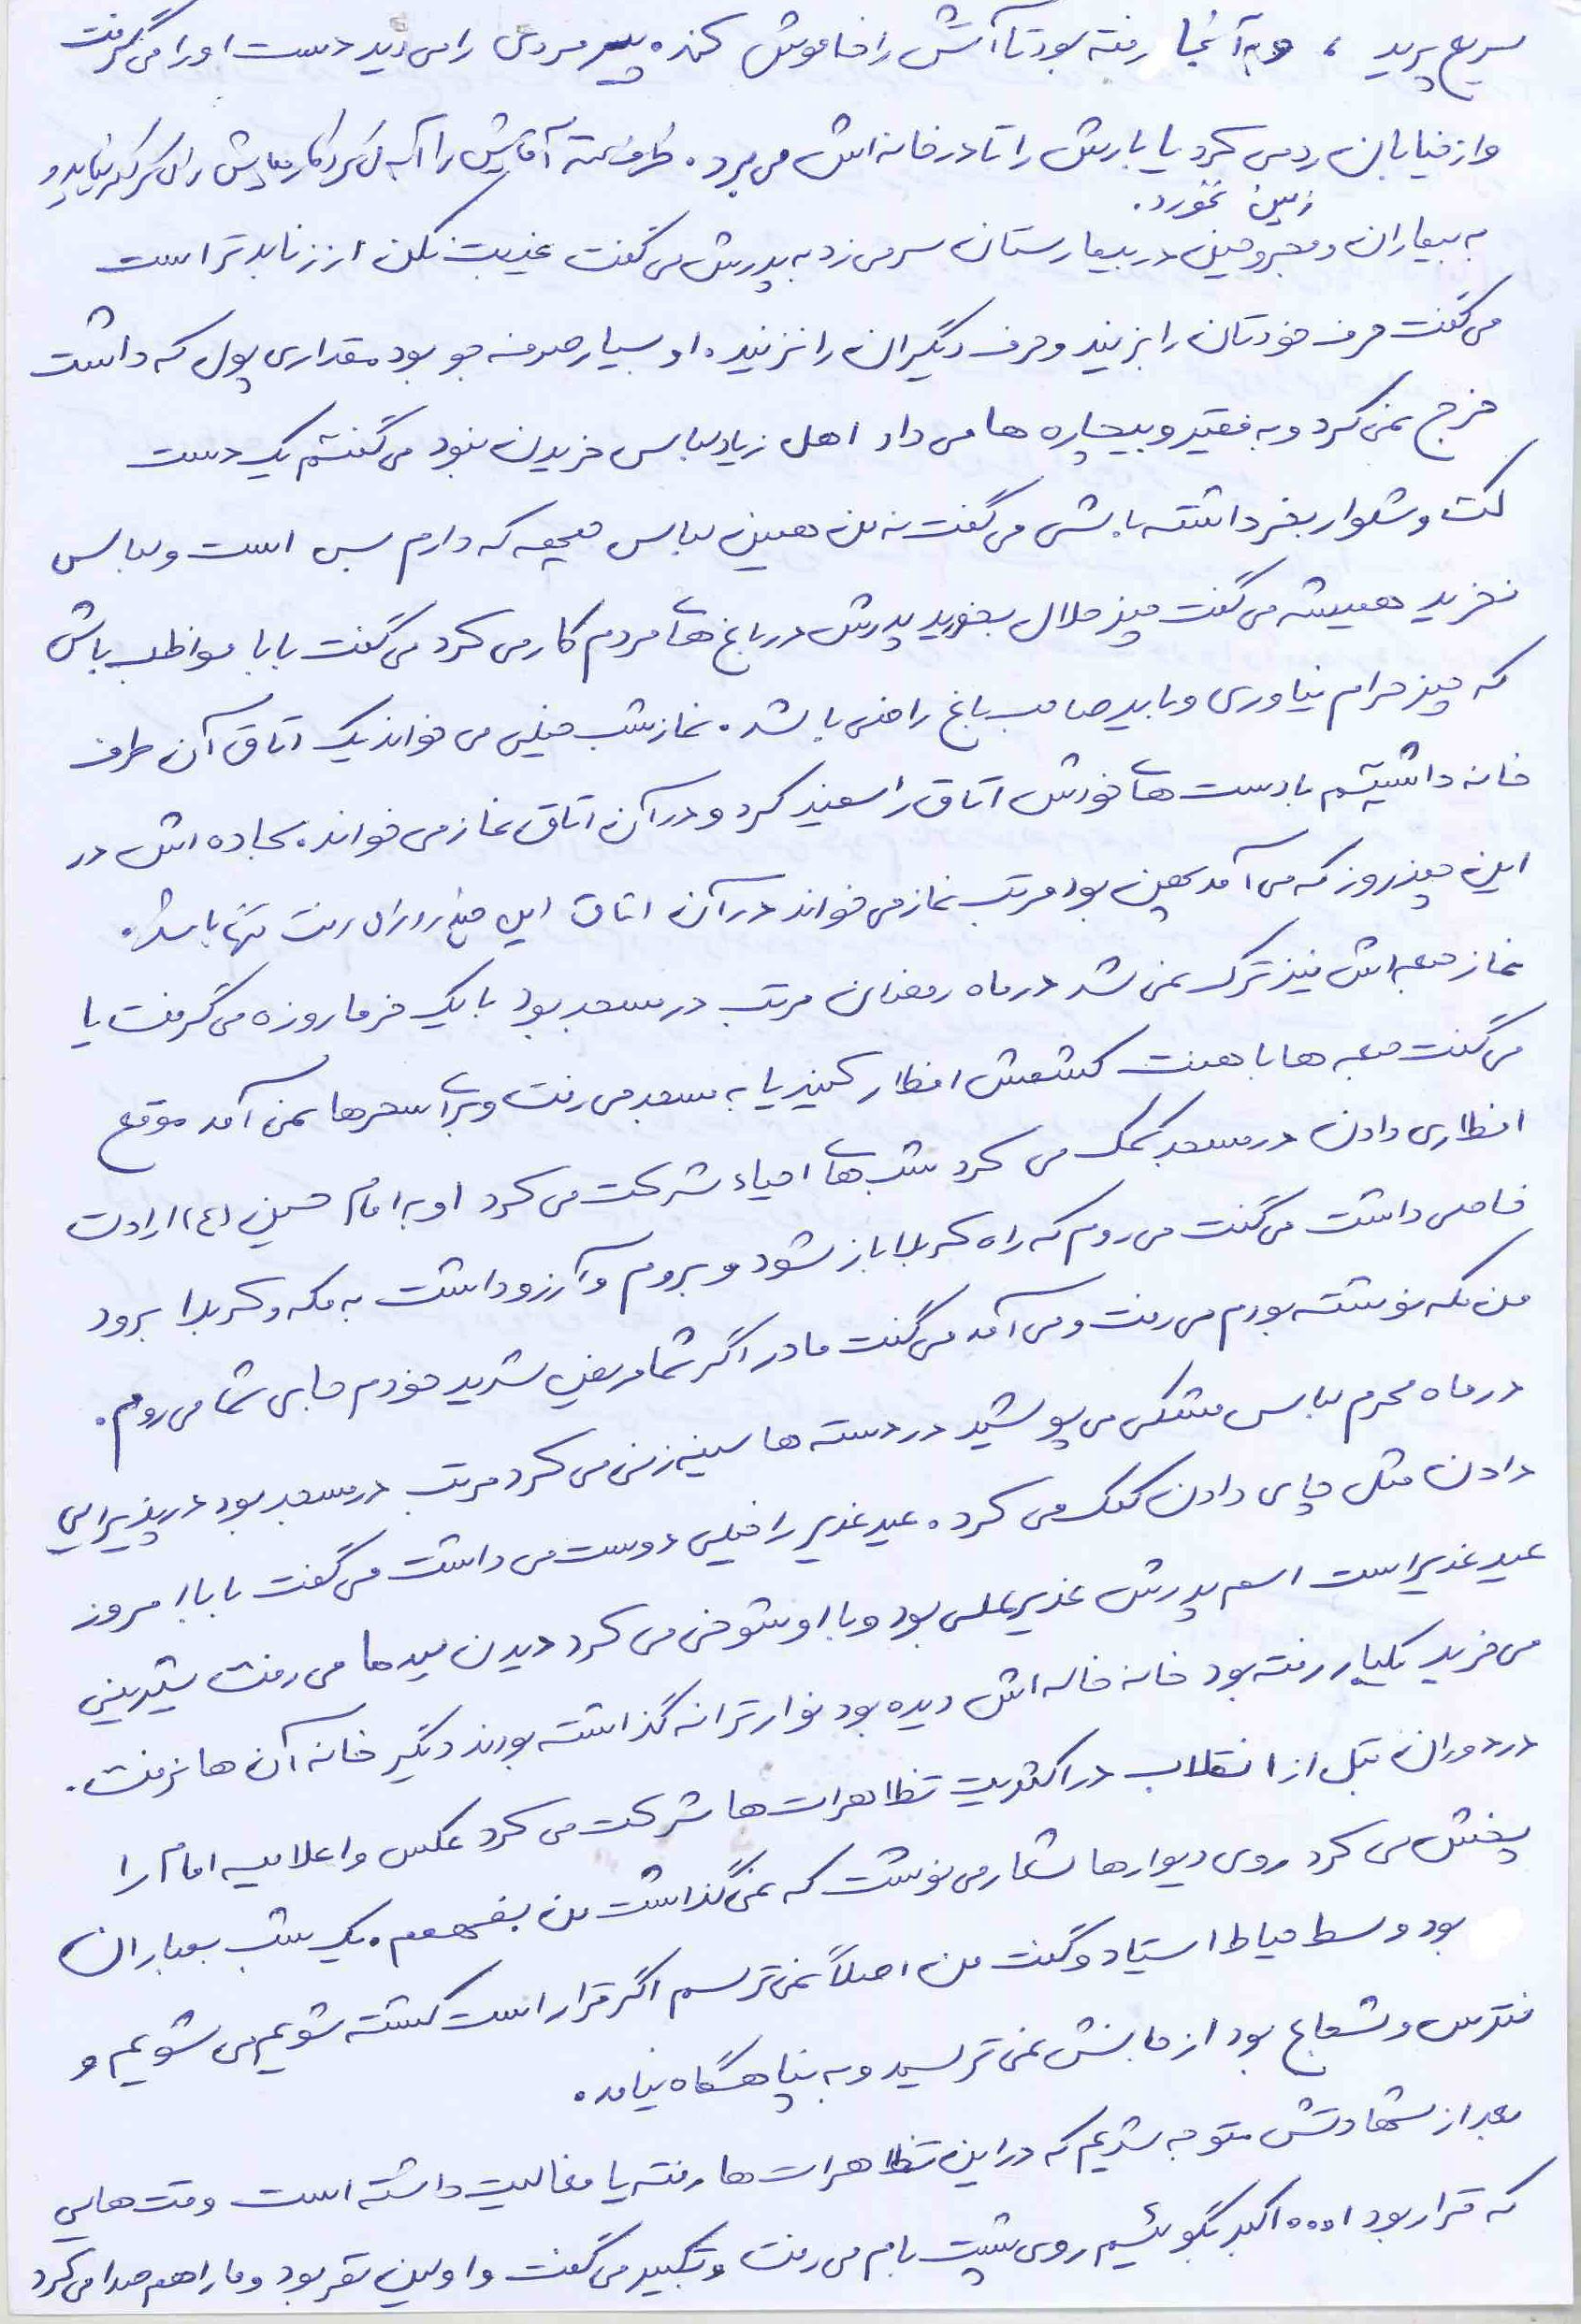 سریع پرید، و به آنجا رفته بود تا آتش را خاموش کند. پیرمردی را می دید دست او را می گرفت
و از خیابان رد می کرد یا بارش را تا در خانه اش می برد. را آب
زمین نخورد.
به بیماران و مجروحین در بیمارستان سر می زد به پدرش می گفت غیبت نکن از زنا بدتر است
می گفت حرف خودتان را بزنید و حرف دیگران را نزنید. او بسیار صرفه جو بود مقداری پول که داشت
خرج نمی کرد و به فقیر و بیچاره ها می داد اهل زیاد لباس خریدن نبود می گفتم یک دست
کت و شلوار بخر داشته باشی می گفت نه من همین لباس که دارم بس است و لباس
نخرید همیشه می گفت چیز حلال بخورید پدرش در باغ های مردم کار می کرد می گفت بابا مواظب باش
که چیز حرام نیاوری و باید صاحب باغ راضی باشد. نماز شب خیلی می خواند یک اتاق آن طرف
خانه داشتیم با دست های خودش اتاق را سفید کرد و در آن اتاق نماز می خواند. سجاده اش در
این چند روز که می آمد پهن بود مرتب نماز می خواند در آن اتاق این تنها باشد.
نماز جمعه اش نیز ترک نمی شد در ماه رمضان مرتب در مسجد بود با یک خرما روزه می گرفت یا
می گفت جمعه ها با هفت کشمش افطار کنید یا به مسجد می رفت و برای سحرها نمی آمد موقع
افطاری دادن در مسجد کمک می کرد شب های احیاء شرکت می کرد او به امام حسین (ع) ارادت
خاصی داشت می گفت می روم که راه کربلا باز شود و بروم و آرزو داشت به مکه و کربلا برود
من مکه نوشته بودم می رفت و می آمد می گفت مادر اگر شما مریض شدید خودم جای شما می روم.
در ماه محرم لباس مشکی می پوشید در دسته ها سینه زنی می کرد مرتب در مسجد بود در پذیرایی
دادن مثل چای دادن کمک می کرد. عید غدیر را خیلی دوست می داشت می گفت بابا امروز
عید غدیر است اسم پدرش غدیرعلی بود و با او شوخی می کرد دیدن سیدها می رفت شیرینی
می خرید یکبار رفته بود خانه خاله اش دیده بود نوار ترانه گذاشته بودند دیگر خانه آن ها نرفت.
در دوران قبل از انقلاب در اکثریت تظاهرات ها شرکت می کرد عکس و اعلامیه امام را
پخش می کرد روی دیوارها شعار می نوشت که نمی گذاشت من بفهمم. یک شب بمباران
بود وسط حیاط استاد و گفت من اصلاً نمی ترسم اگر قرار است کشته شویم می شویم و
نترس و شجاع بود از جانش نمی ترسید و به پناهگاه نیامد.
بعد از شهادتش متوجه شدیم که در این تظاهرات ها رفته یا فعالیت داشته است وقت هایی
که قرار بود ا... اکبر بگوئیم روی پشت بام می رفت و تکبیر می گفت و اولین نفر بود و ما را هم صدا می کرد